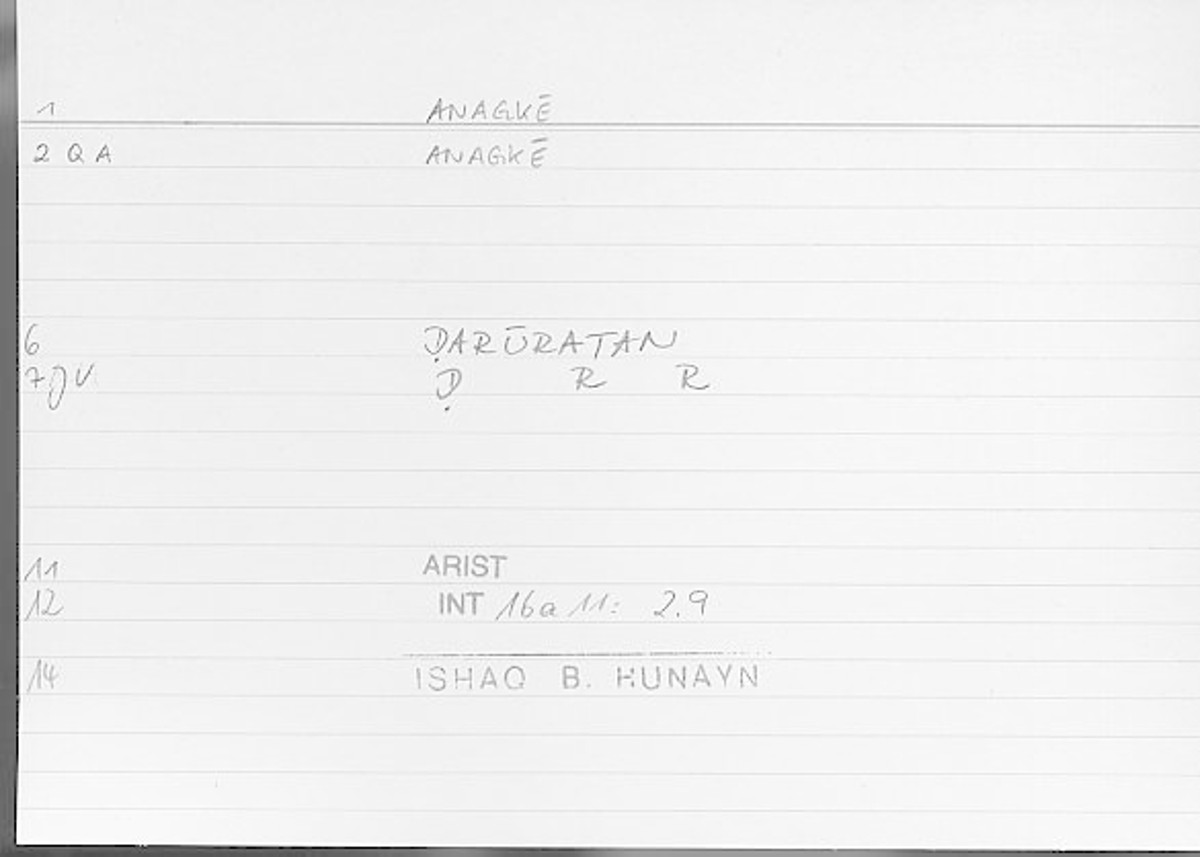 1 ANAGKĒ
2 Q A ANAGKĒ
6 ḌARŪRATAN
7 J V Ḍ R R
11 ARIST
12 INT 16a 11: 2.9
14 ISHAQ B. HUNAYN